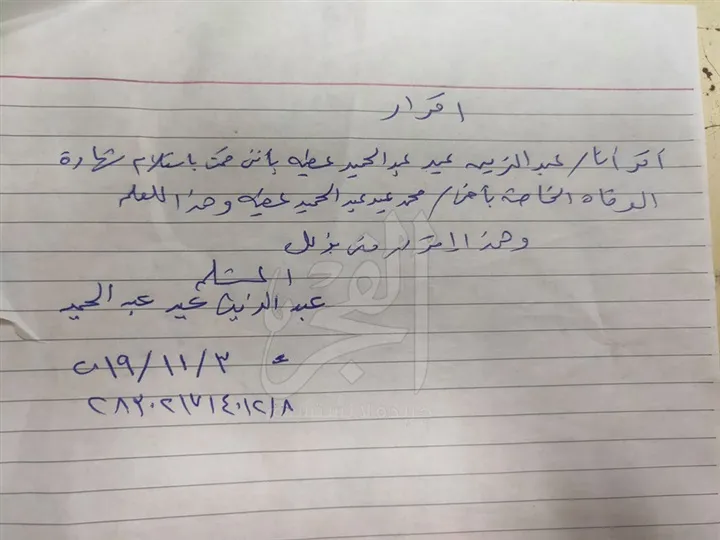 اقرار
أقر أنا/ عبدالزينه عيد عبدالحميد عطيه بأنن قمت باستلام شهادة
الوفاه الخاصة بأخى/ محمد عيد عبدالحميد عطيه وهذا للعلم
وهذا إقرار منى بذلك
المستلم
عبد الزينه عيد عبد الحميد
٢٠١٩/١١/٣
الفجر